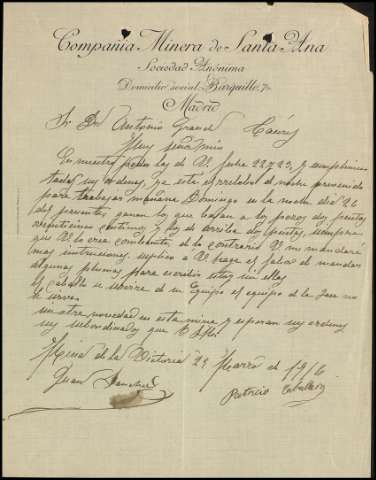 Compañia Minera de Santa Ana
Sociedad Anónima
Domicilio social, Barquillo, 7
Madrid
Sr Dn Antonio Grande Caceres
Muy señor mio
En nuestro poder las de Vd fecha 22 y 23, y cumplimos
todas sus ordenes, ya esta el malacate prevenido
para trabajar mañana Domingo en la noche dia 26
del presente ganan los que bajan a los pozos dos pesetas
veinticinco centimos y los de arriba dos pesetas, siempre
que Vd lo crea combeniente de lo contrario Vd nos mandará
mas instruciones. suplico a Vd haga el fabor de mandar
algunas plumas para escribir estoy sin ellas
el caballo se servira de su Equipo el equipo de la Jaca no
le sirve.
sin otra novedad en esta mina y esperan sus ordenes
sus subordinados que
Mina de la Victoria 25 Marzo de 1916
Juan Sanchez Patricio Caballero